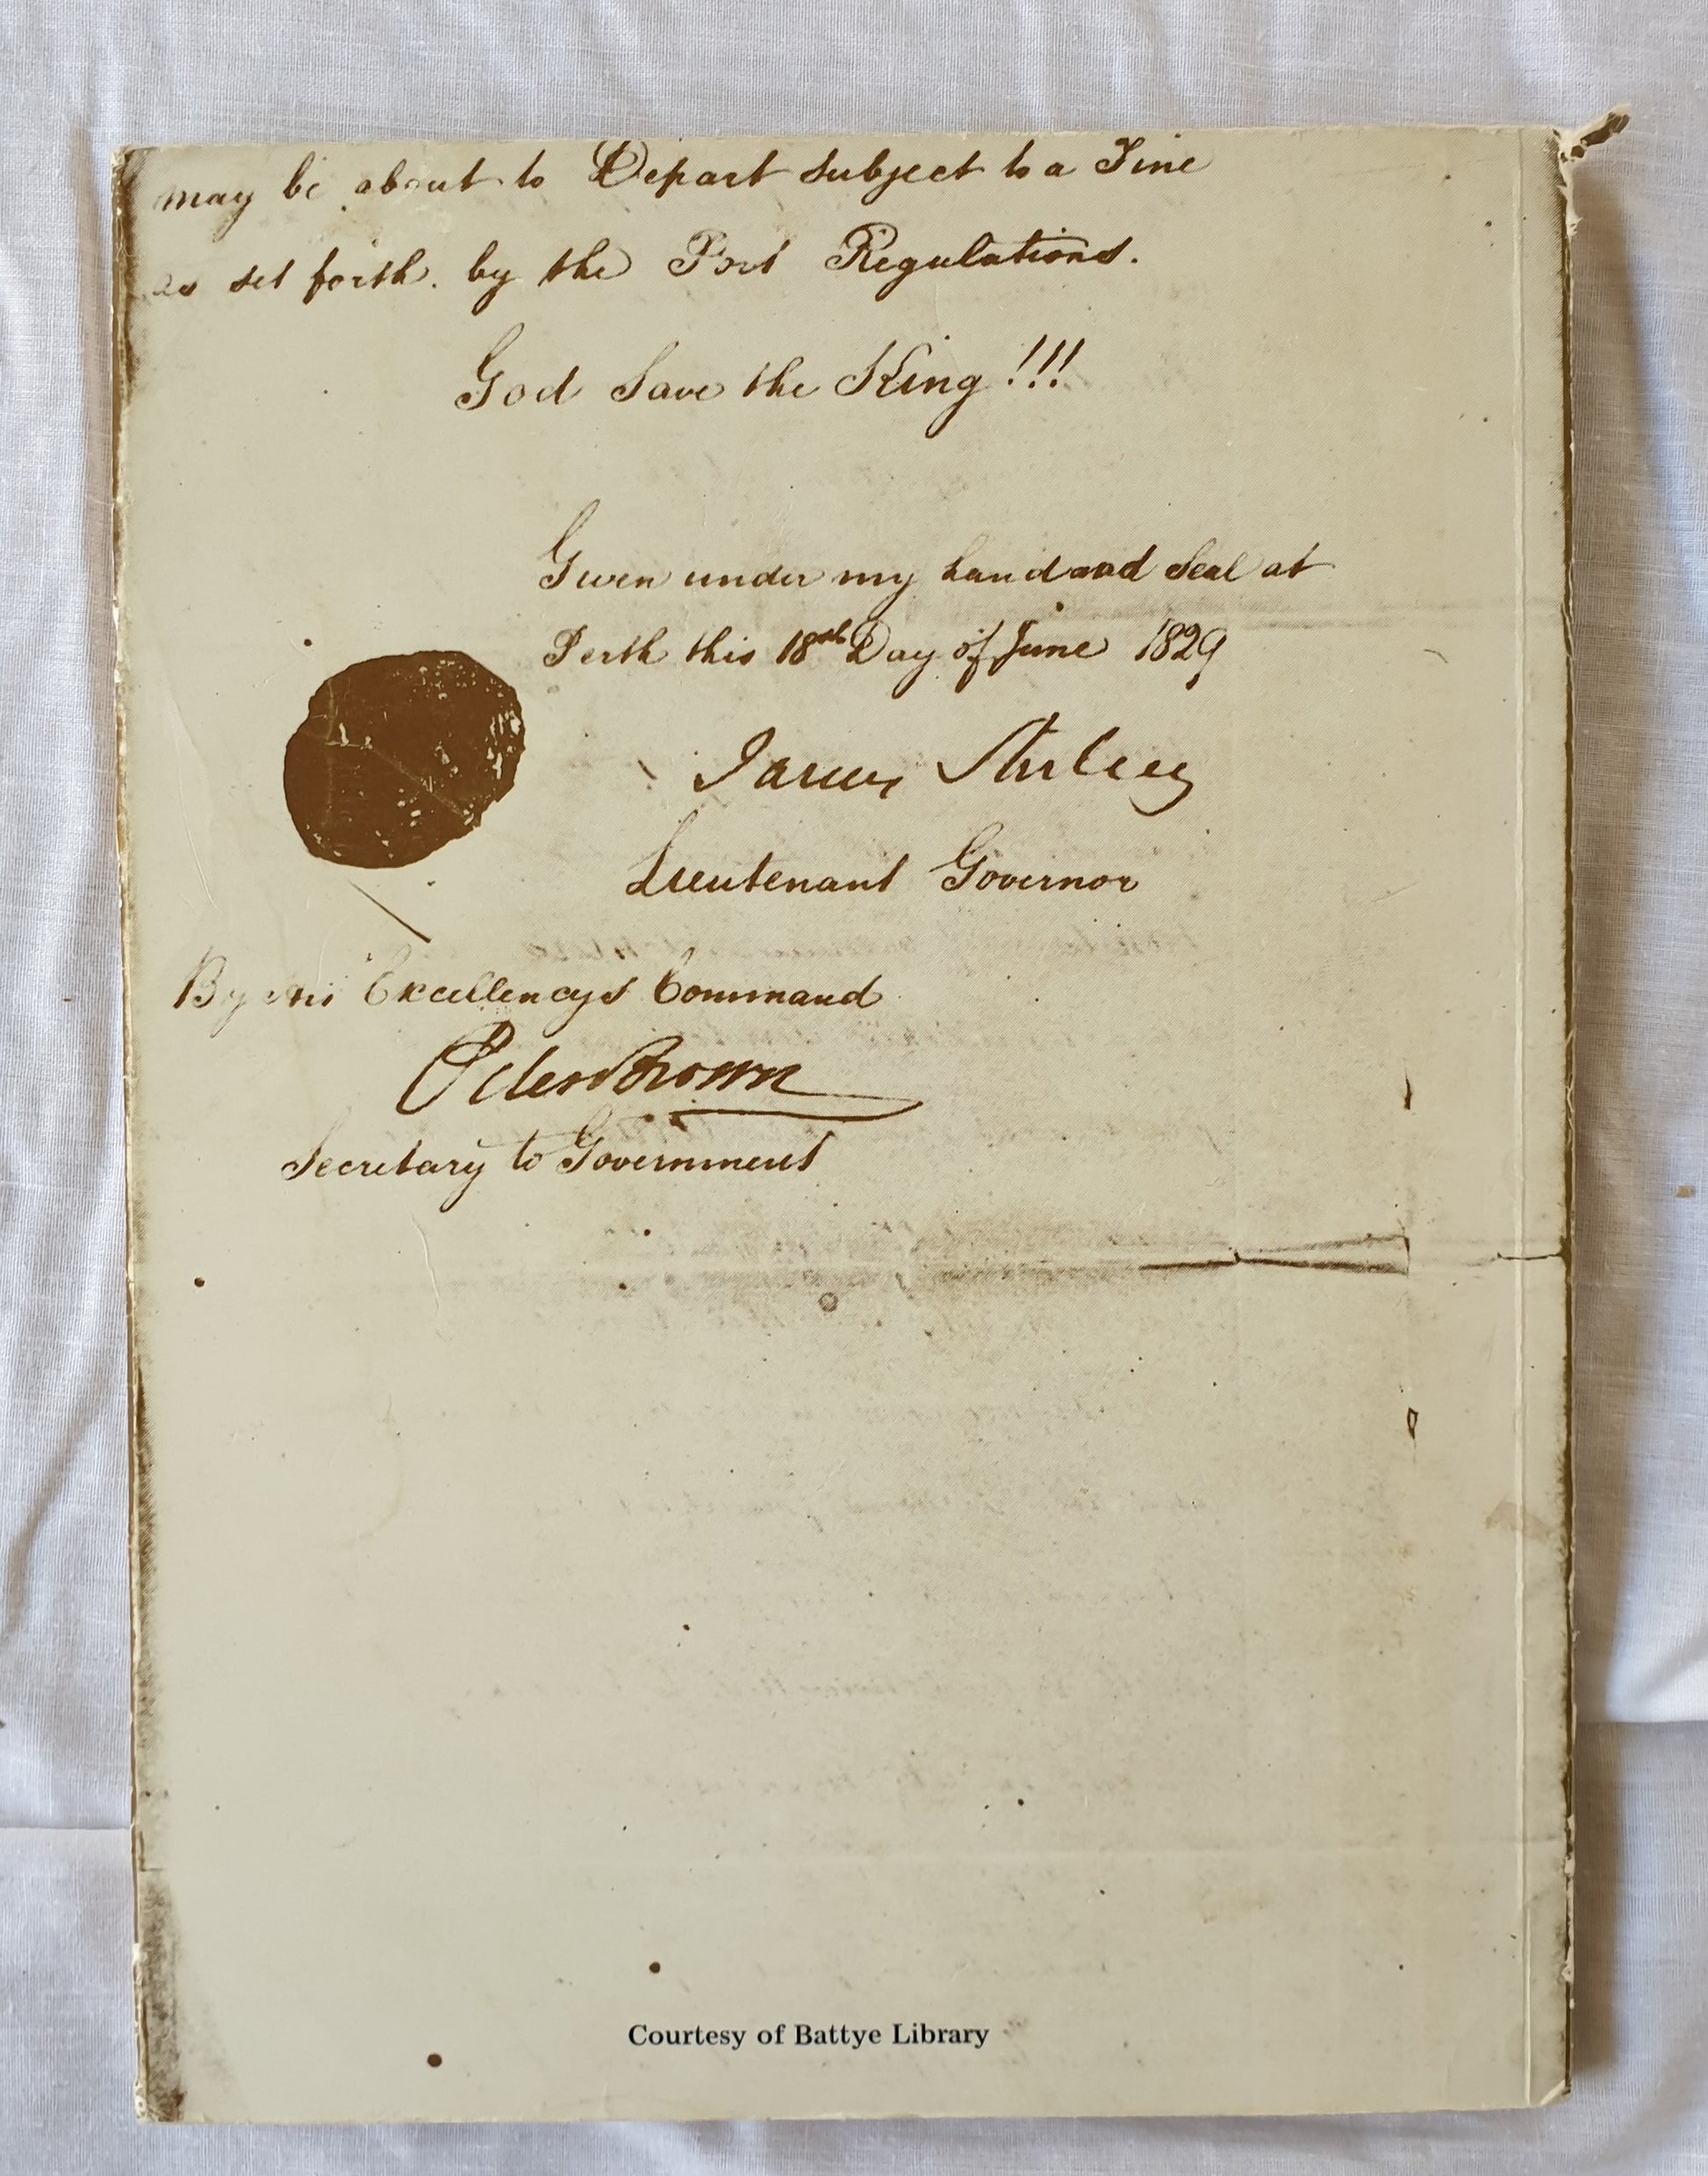 may be about to Depart subject to a Fine
as set forth by the Port Regulations.
God Save the King!!!
Given under my hand and Seal at
Perth this 18th Day of June 1829
James Stirling
Lieutenant Governor
By His Excellencys Command
Peter Brown
Secretary to Government
Courtesy of Battye Library